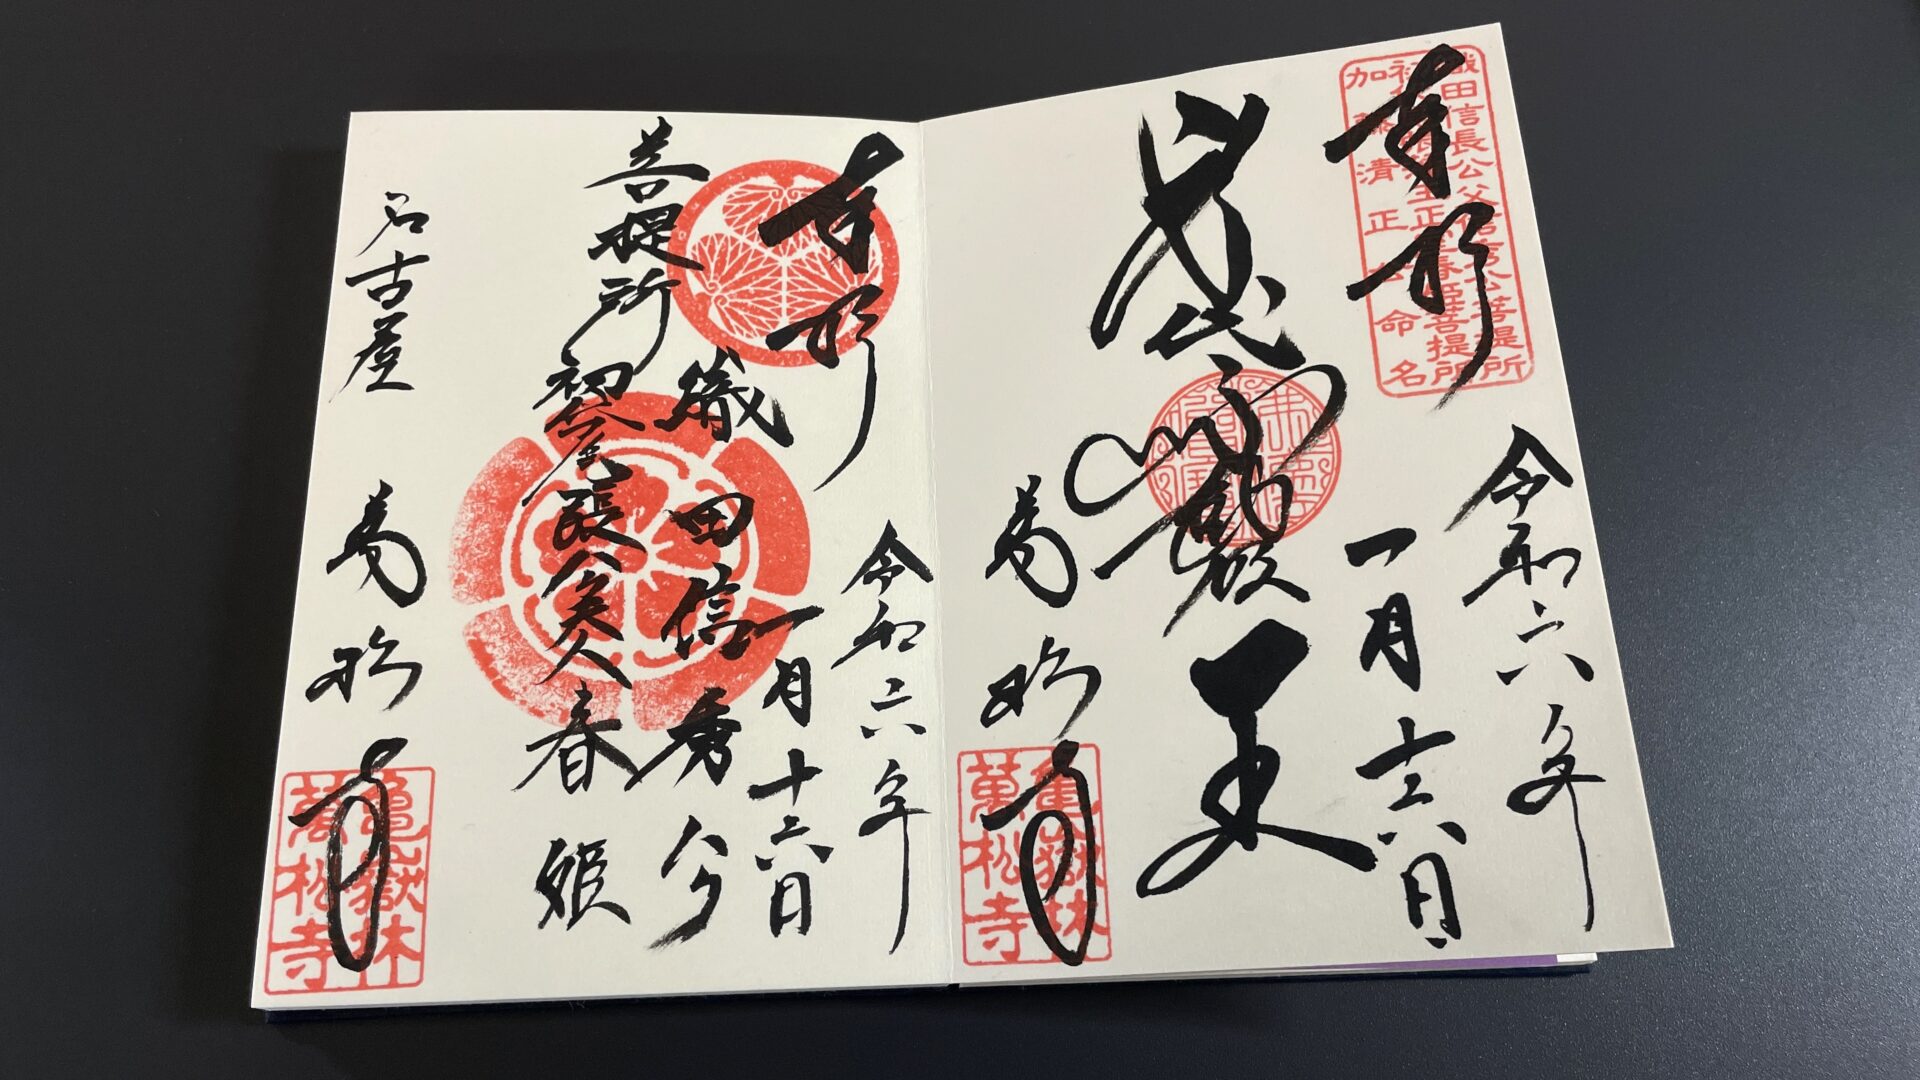 奉拝
織田信長公父信秀公菩提所
春姫菩提所
加藤清正公命名
令和六年
一月十六日
萬松寺
亀嶽林
萬松寺
奉拝
令和六年
一月十六日
織田信秀公
菩提所
初代尾張公夫人春姫
名古屋
萬松寺
亀嶽林
萬松寺